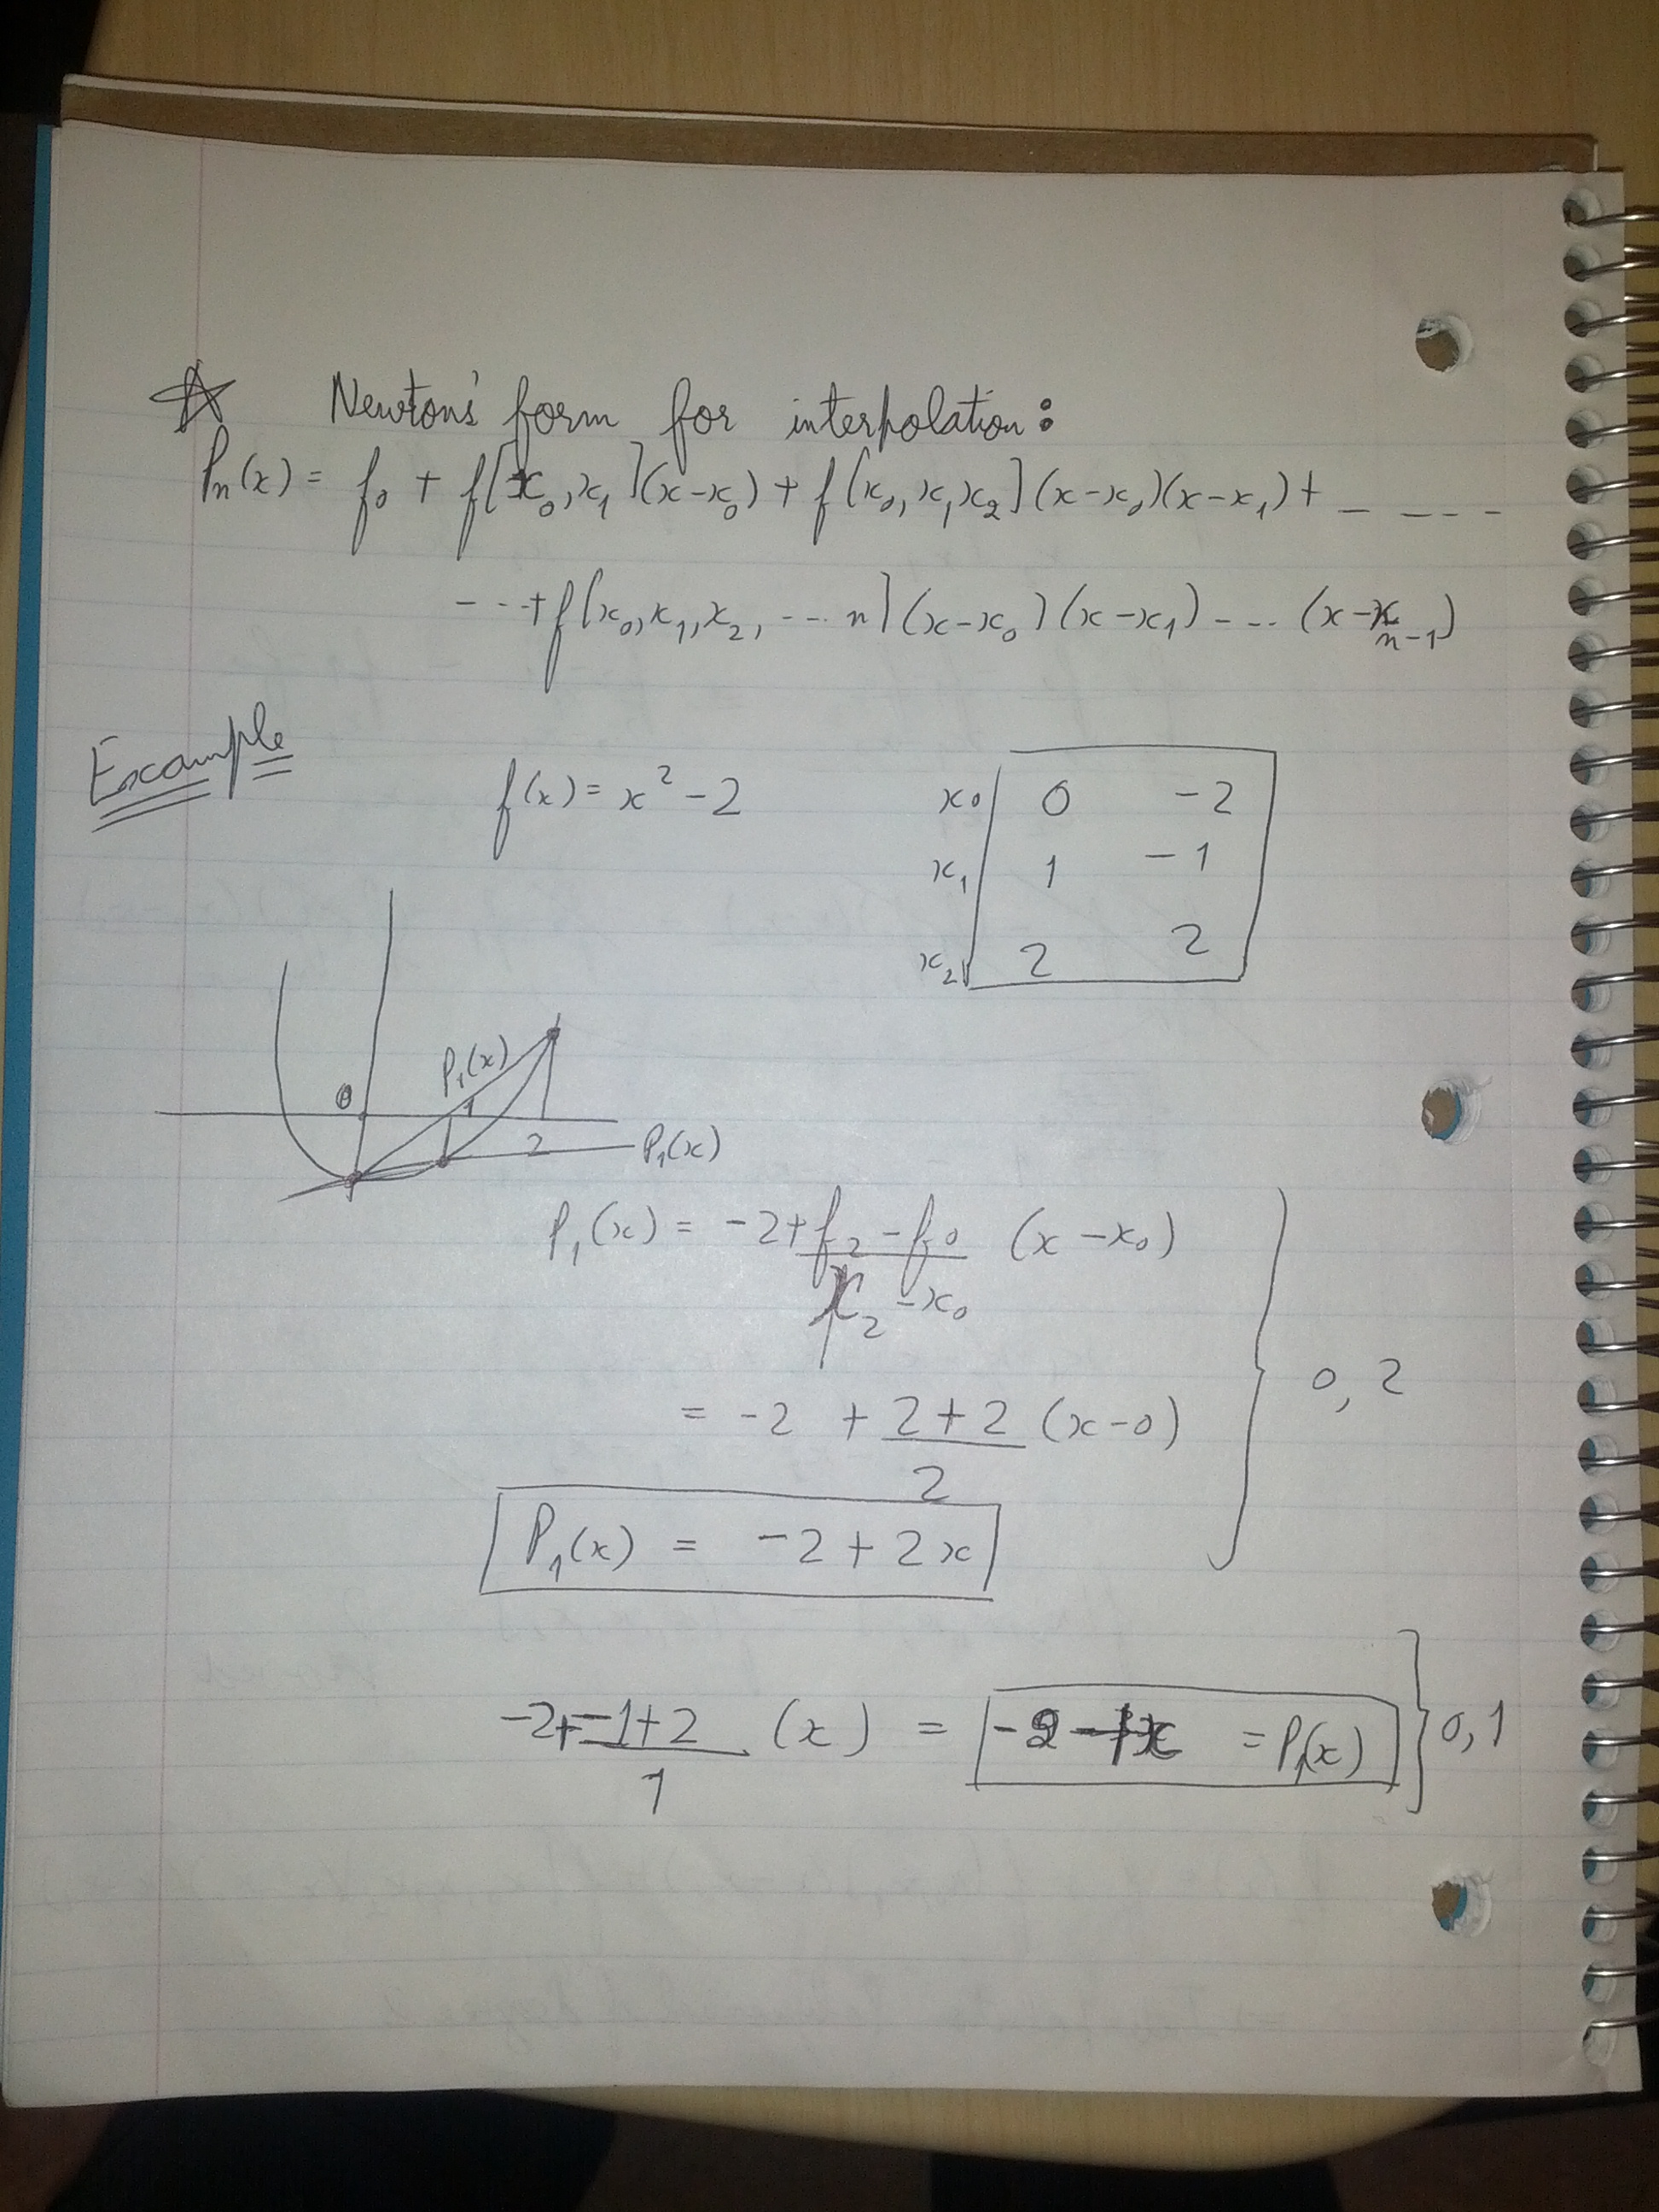 ☆ Newtons' form for interpolation:
Pn(x) = f0 + f[x0, x1](x-x0) + f[x0, x1 x2](x-x0)(x-x1) + - - - - -
- - - + f[x0, x1, x2, - - - n](x-x0)(x-x1) - - - (x-xn-1)
Example
f(x) = x² - 2
x0 0 -2
x1 1 -1
x2 2 2
0
P1(x)
1
2
P1(x)
P1(x) = -2 + (f2 - f0)/(x2 - x0) (x - x0)
= -2 + (2+2)/2 (x-0)
0, 2
P1(x) = -2 + 2x
-2 + (-1+2)/1 (x) = = P1(x)
0, 1